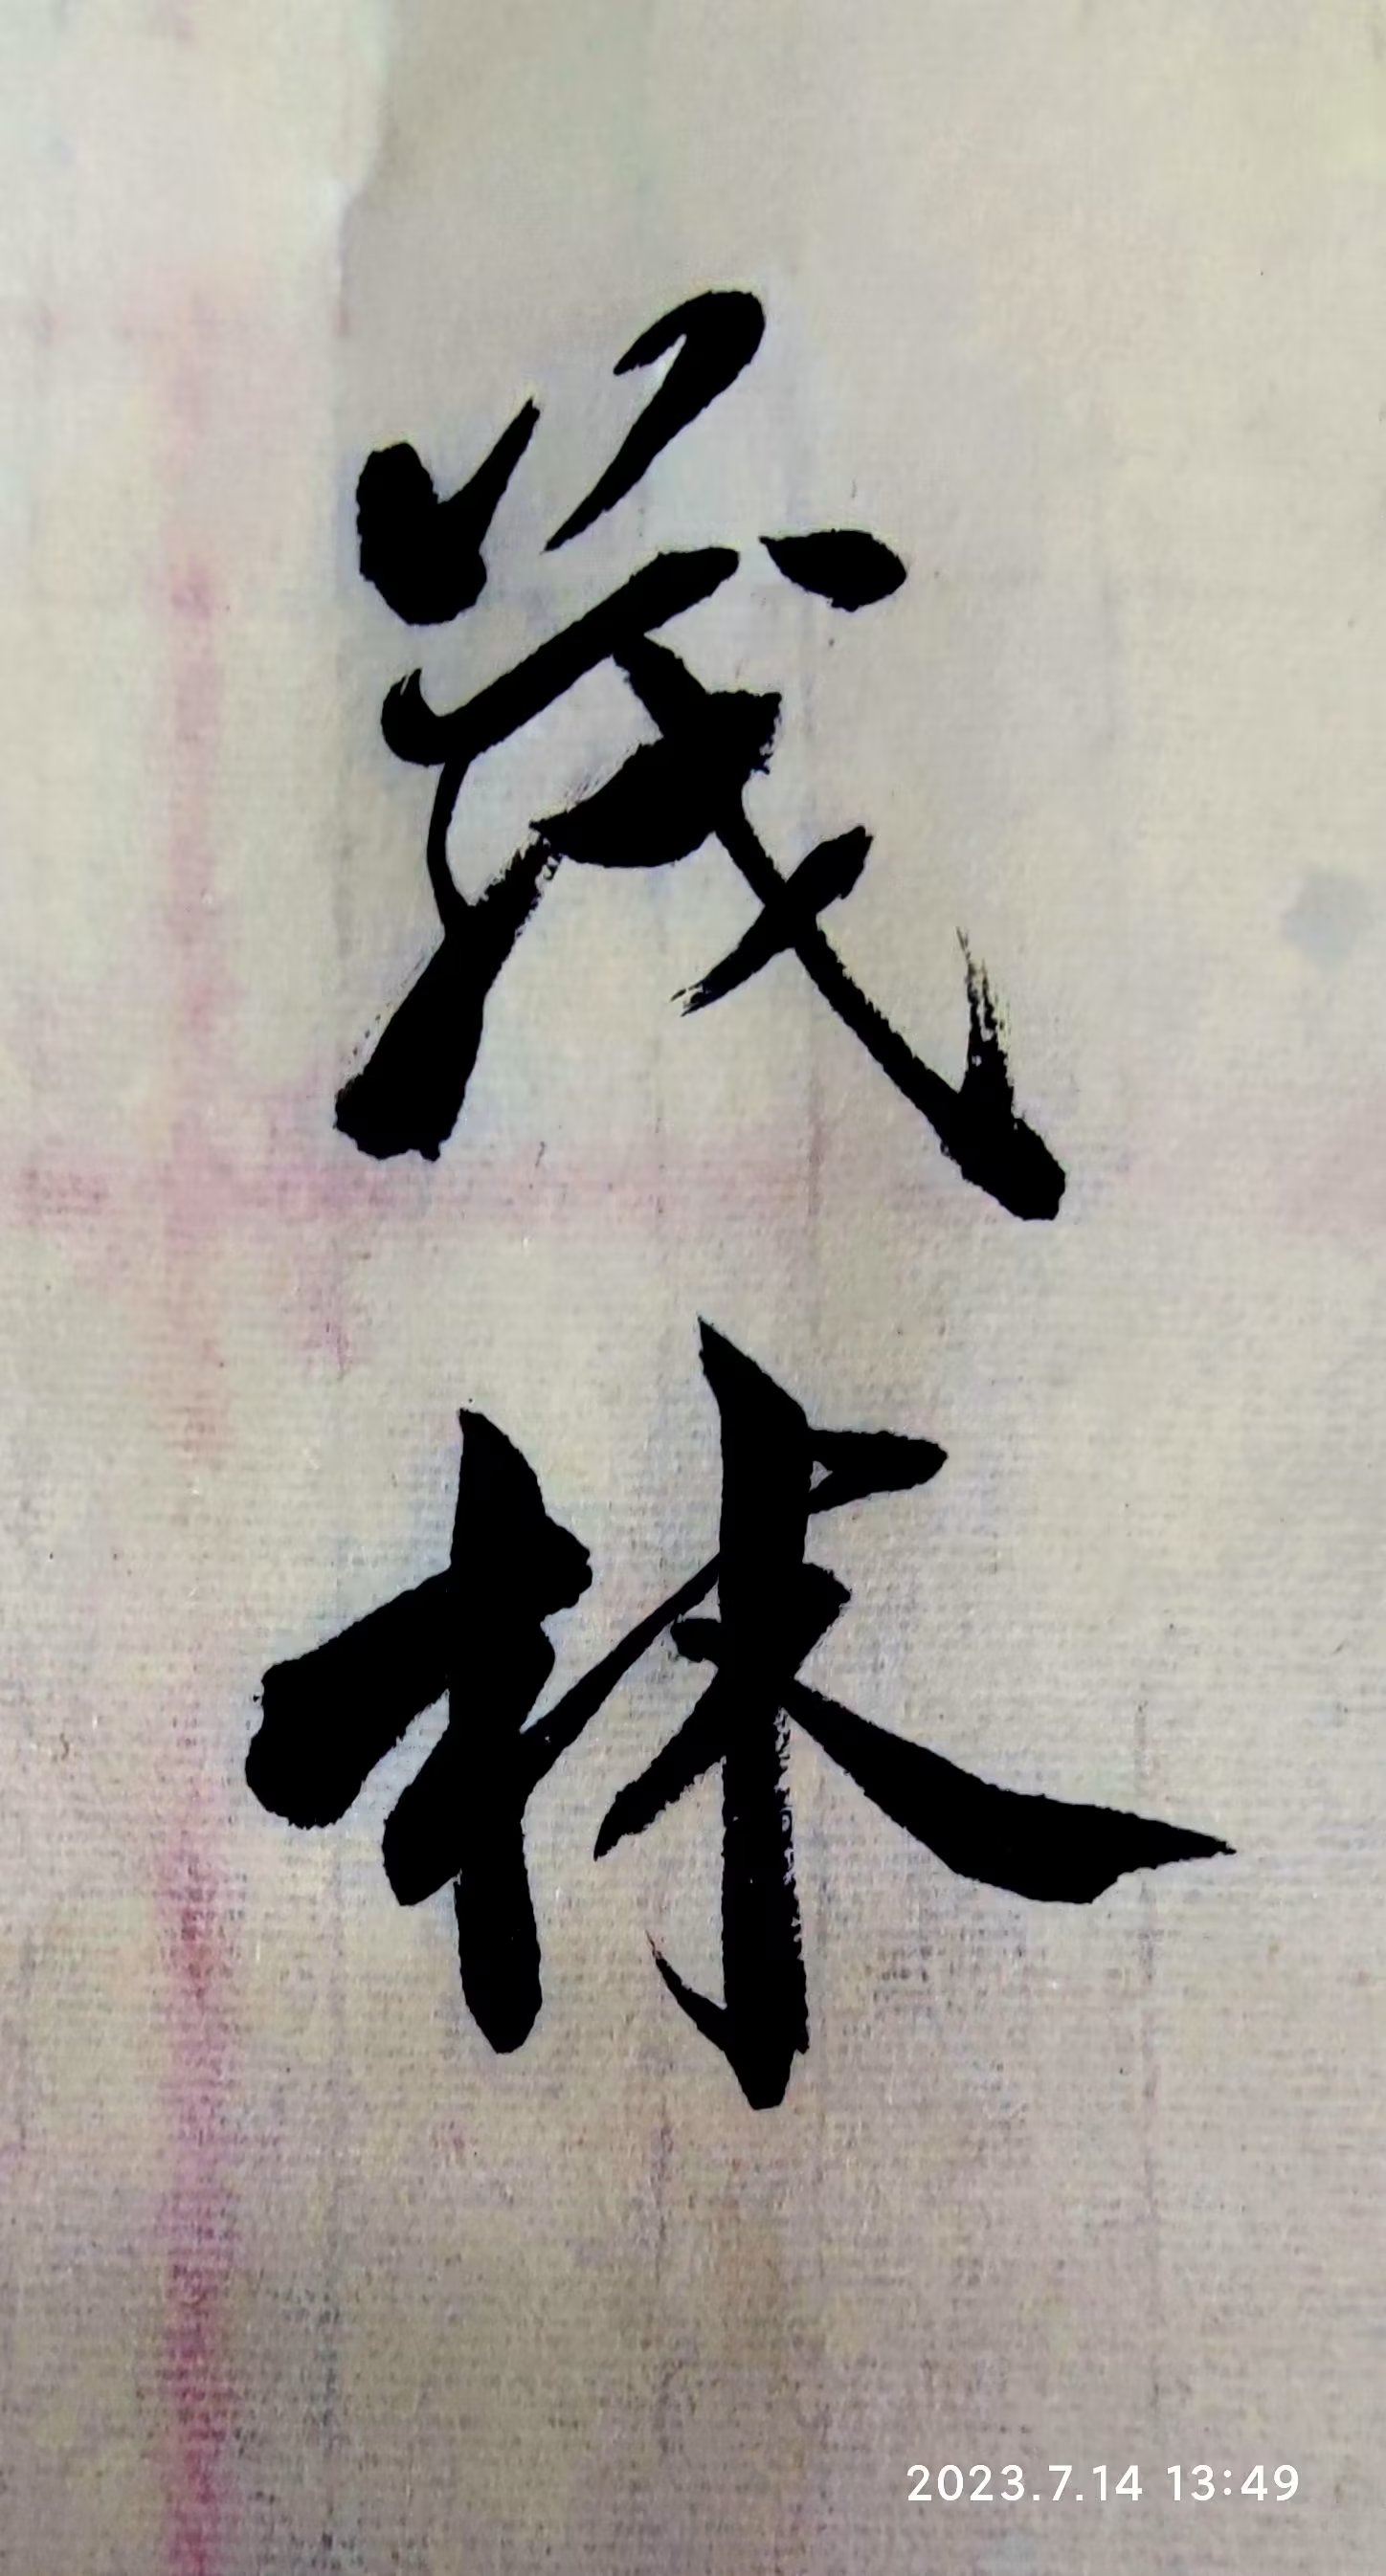 茂林
2023.7.14 13:49